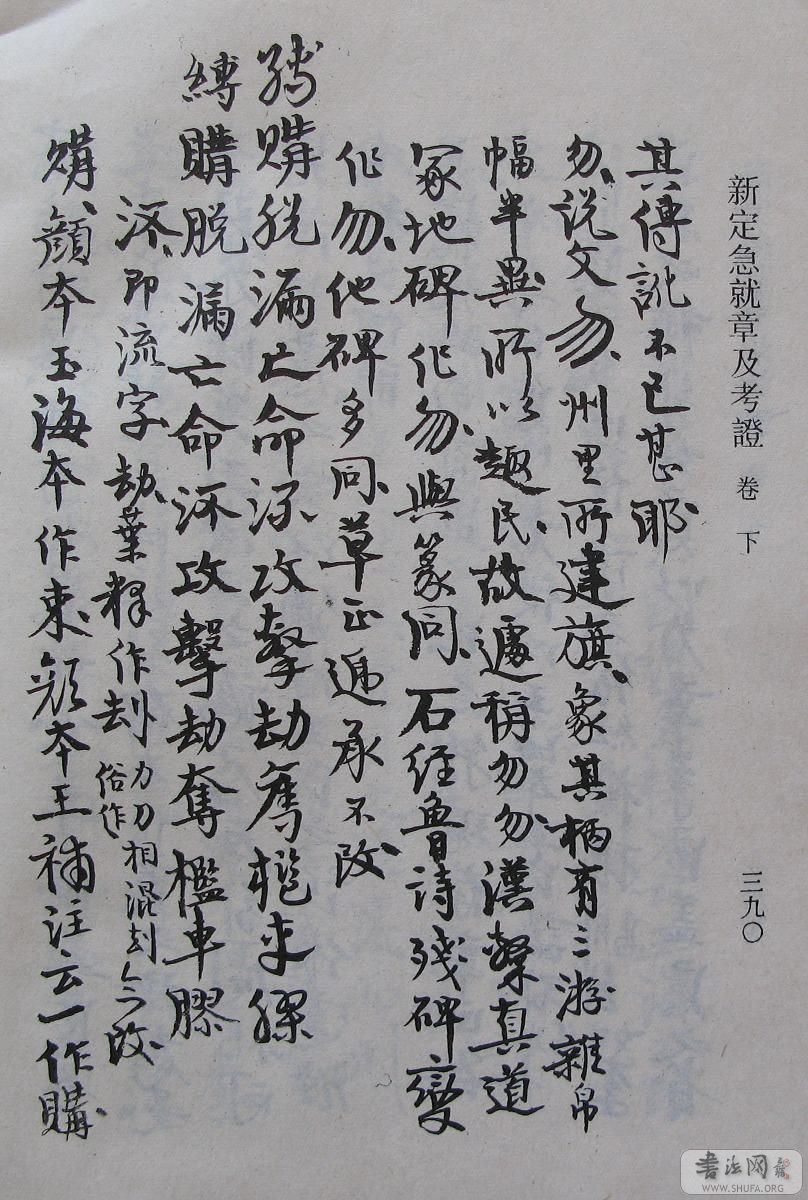 新定急就章及考證 卷下 三九〇
其傳訛不已甚耶
勿、说文勿、州里所建旗、象其柄有三游雜帛
幅半異所以趣民、故遽稱勿勿、漢繁真道
冢地碑作勿、與篆同、石经鲁诗残碑變
作勿、他碑多同、草正遞承不改、
縛購脱漏亡命流攻擊劫奪槛車膠
縛購脱漏亡命泺攻擊劫奪檻車膠
泺、即流字 劫、葉释作刦 俗作 力刀相混刻今改
購、顔本玉海本作束顔本王補注云一作購、
書法网
WWW.SHUFA.ORG